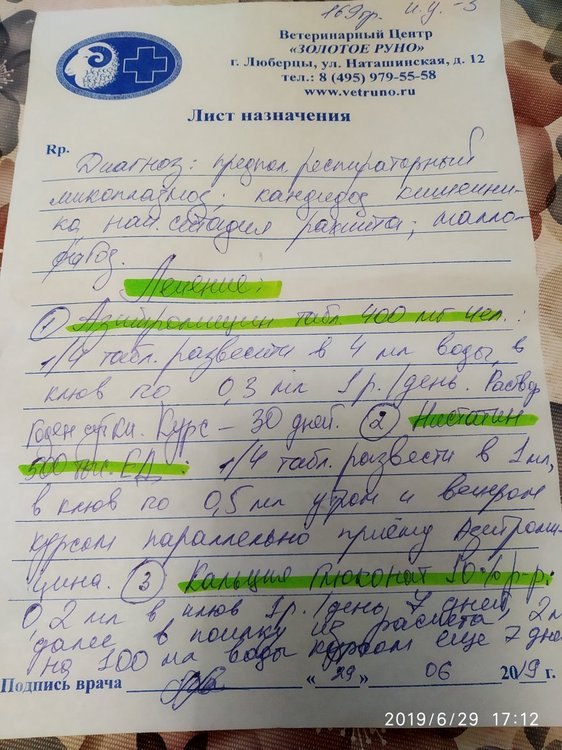 169гр. и.у. -3
Ветеринарный Центр
«ЗОЛОТОЕ РУНО»
г. Люберцы, ул. Наташинская, д. 12
тел.: 8 (495) 979-55-58
www.vetruno.ru
Лист назначения
Rp.
Диагноз: предпол. респираторный
микоплазмоз; кандидоз кишечни-
ка нач. стадия рахита; малло-
фагоз.
Лечение:
① Азитромицин табл. 400 мг чел.:
1/4 табл. развести в 4 мл воды, в
клюв по 0,3 мл 1р./день. Раствор
годен сутки. Курс - 30 дней. ② Нистатин
500 тыс. ЕД: 1/4 табл. развести в 1 мл,
в клюв по 0,5 мл утром и вечером
курсом параллельно приёму Азитроми-
цина. ③ Кальция глюконат 10% р-р:
0,2 мл в клюв 1р./день 7 дней,
далее в поилку из расчета, 2м
на 100 мл воды курсом еще 7 дне
Подпись врача « 29 » 06 2019 г.
2019/6/29 17:12